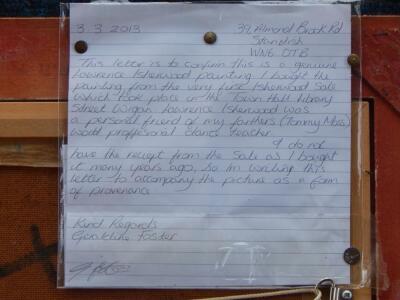 3.3.2013
39 Almond Brook Rd
Standish
WN6 0TB
This letter is to confirm this is a genuine
Lawrence Isherwood painting. I bought the
painting from the very first Isherwood Sale
which took place in the Town Hall Library
Street Wigan. Lawrence Isherwood was
a personal friend of my farthers (Tommy Moss)
world proffesional dance teacher.
I do not
have the reciept from the sale as I bought
it many years ago, so Im writing this
letter to accompany the picture as a form
of provenance
Kind Regards
Geraldine Foster